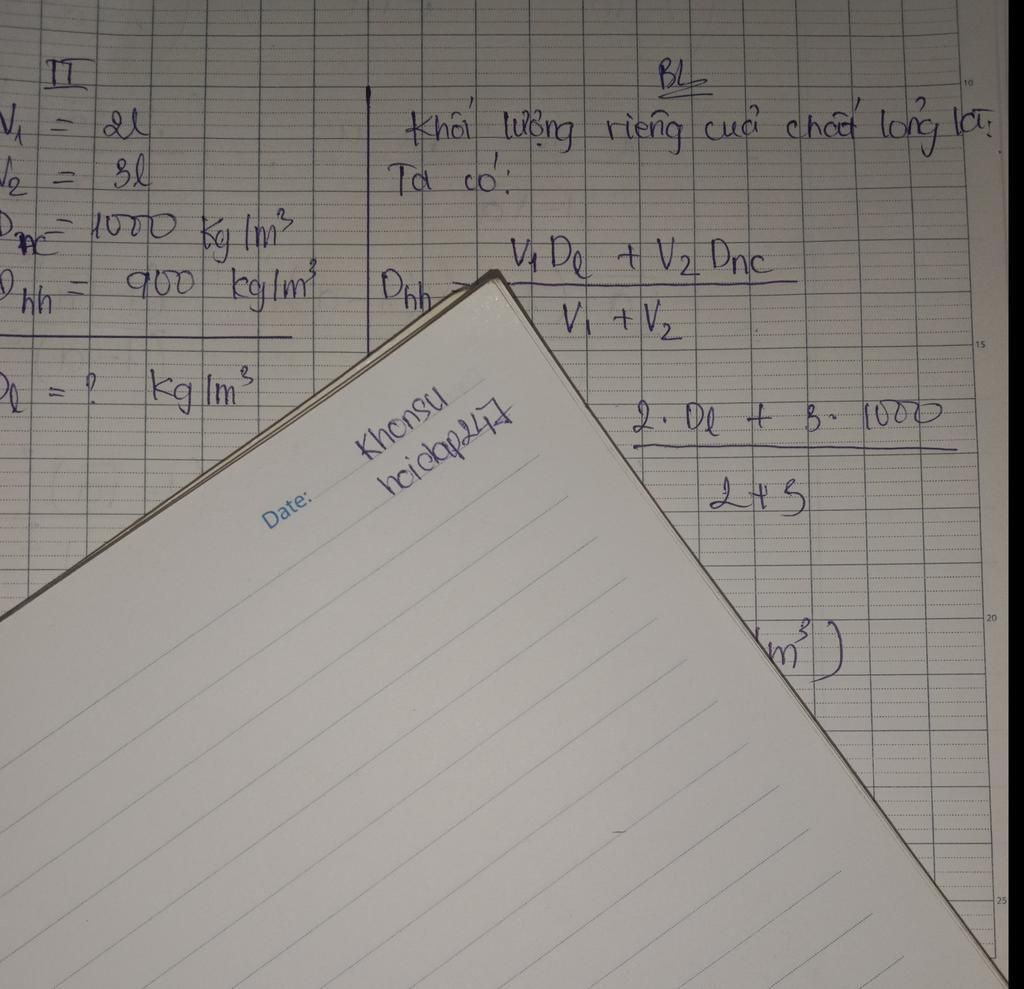 TT
V1 = 2l
V2 = 3l
Dnc = 1000 kg/m³
Dhh = 900 kg/m³
Dl = ? kg/m³
BL
Khối lượng riêng cuả chất lỏng là:
Ta có:
Dhh = V1Dl + V2Dnc
V1 + V2
2. Dl + 3. 1000
2 + 3
m³)
Date:
Khonsu
hoidap247
10
15
20
25